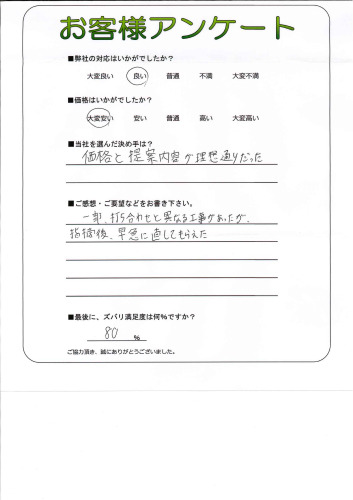 お客様アンケート
■弊社の対応はいかがでしたか？
大変良い 良い 普通 不満 大変不満
■価格はいかがでしたか？
大変安い 安い 普通 高い 大変高い
■当社を選んだ決め手は？
価格と提案内容が理想通りだった
■ご感想・ご要望などをお書き下さい。
一部、打ち合わせと異なる工事があったが、
指摘後、早急に直してもらえた
■最後に、ズバリ満足度は何％ですか？
80 %
ご協力頂き、誠にありがとうございました。